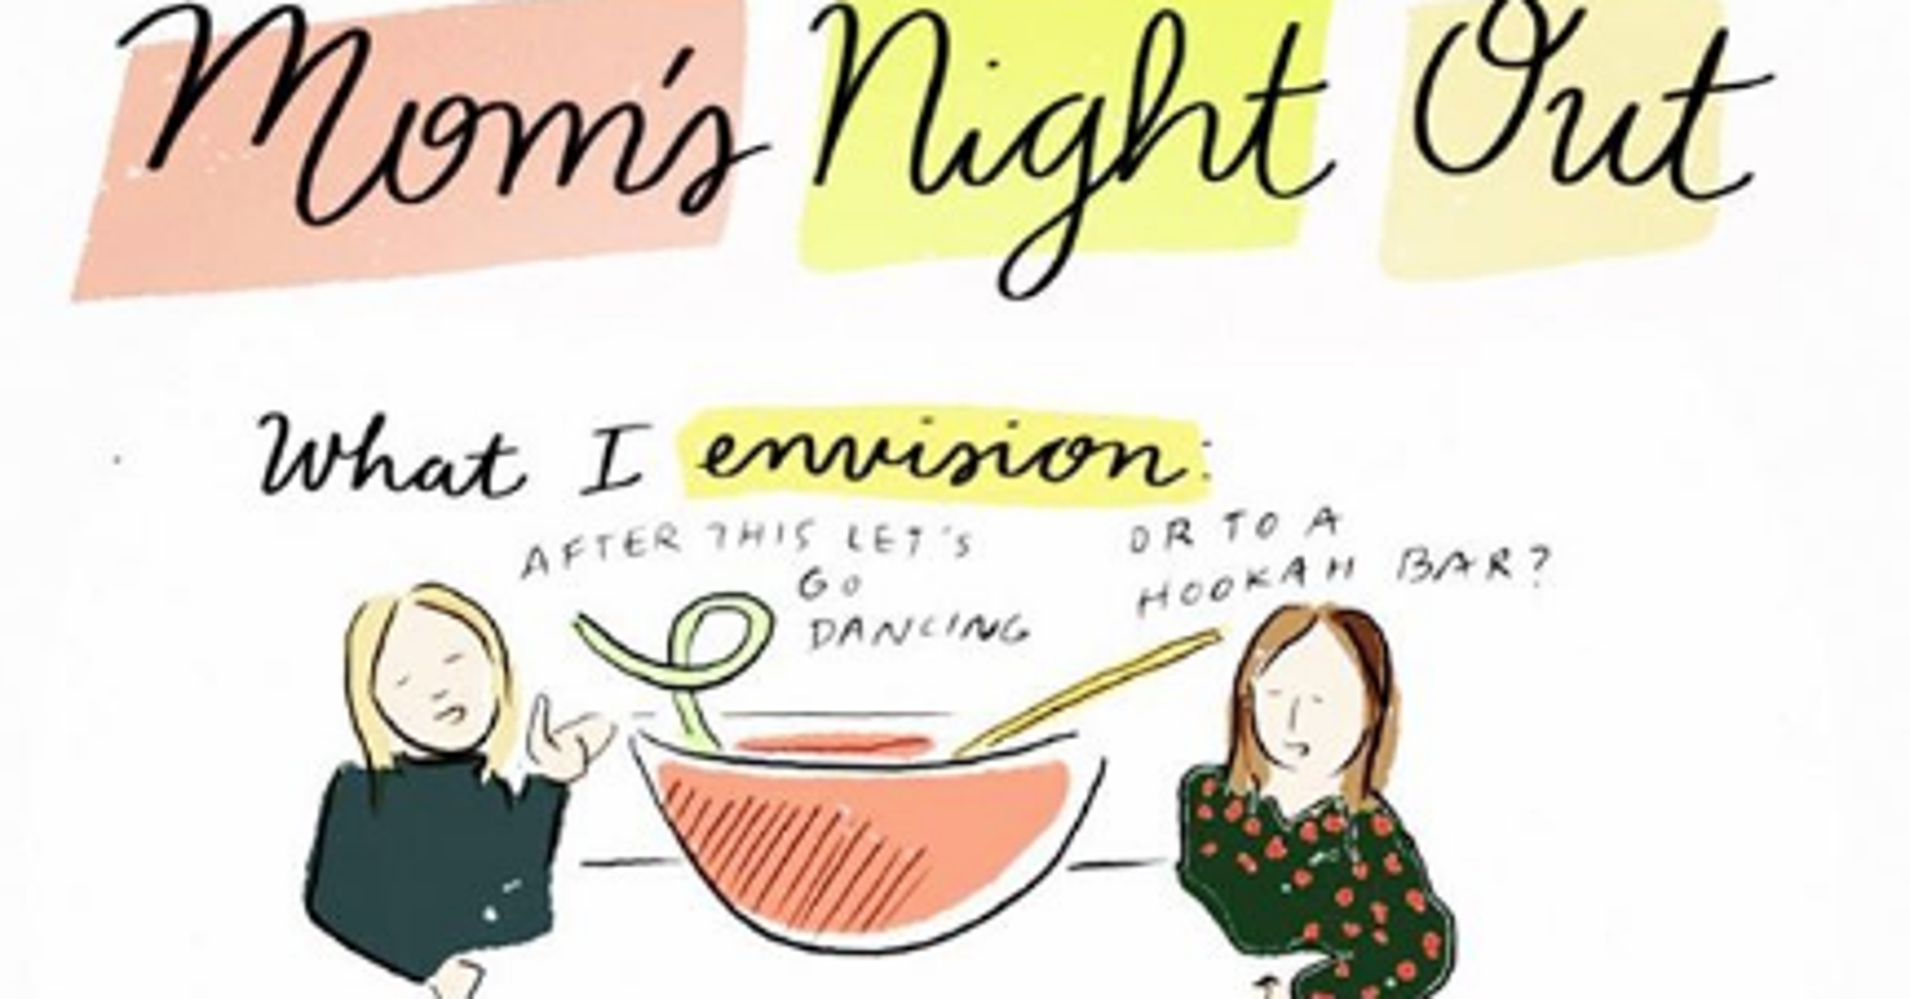 Mom's Night Out
What I envision:
AFTER THIS LET'S
GO
DANCING
OR TO A
HOOKAH BAR?